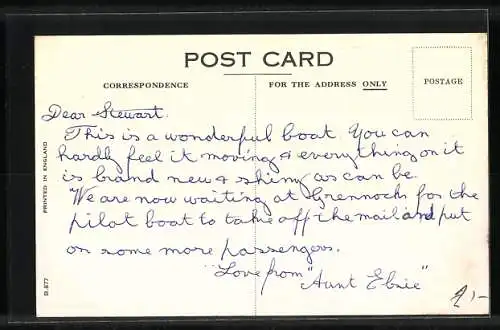 POST CARD
CORRESPONDENCE
FOR THE ADDRESS ONLY
POSTAGE
Dear Stewart.
This is a wonderful boat. You can
hardly feel it moving & everything on it
is brand new & shiny as can be.
We are now waiting at Grennoch for the
pilot boat to take off the mail and put
on some more passengers.
Love from "Aunt Elsie"
PRINTED IN ENGLAND
D.677